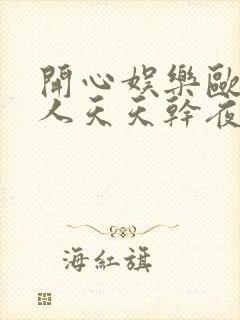 開心娛樂歐
人天天幹夜
海紅旗